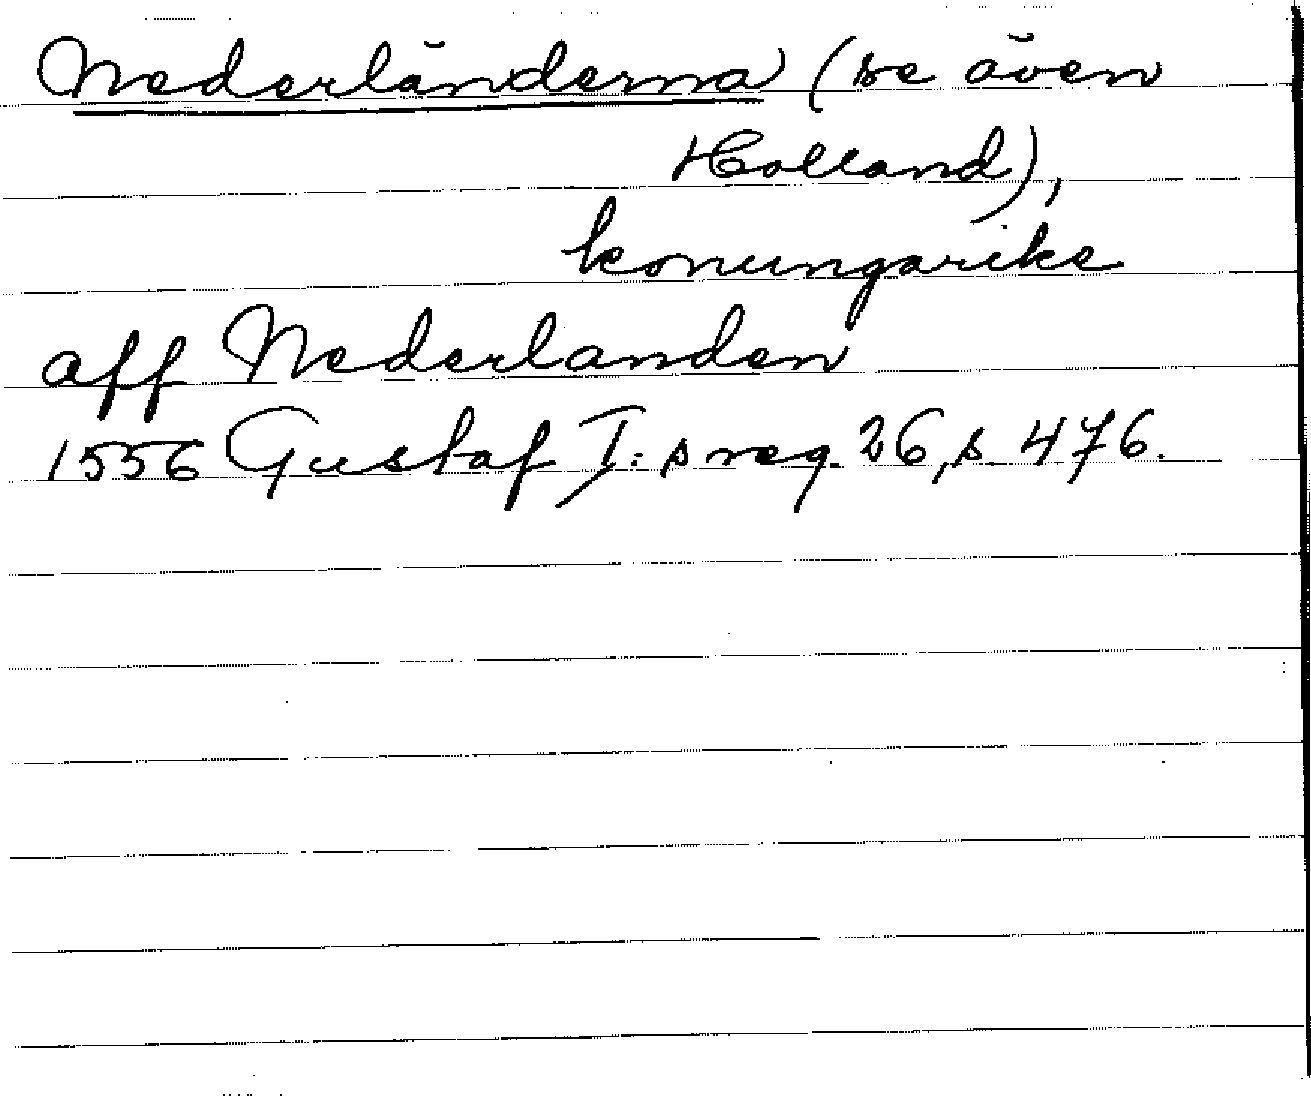 Nederländerna (se även
Holland),
konungarike
aff Nederlanden
1556 Gustaf I:s reg. 26, s. 476.